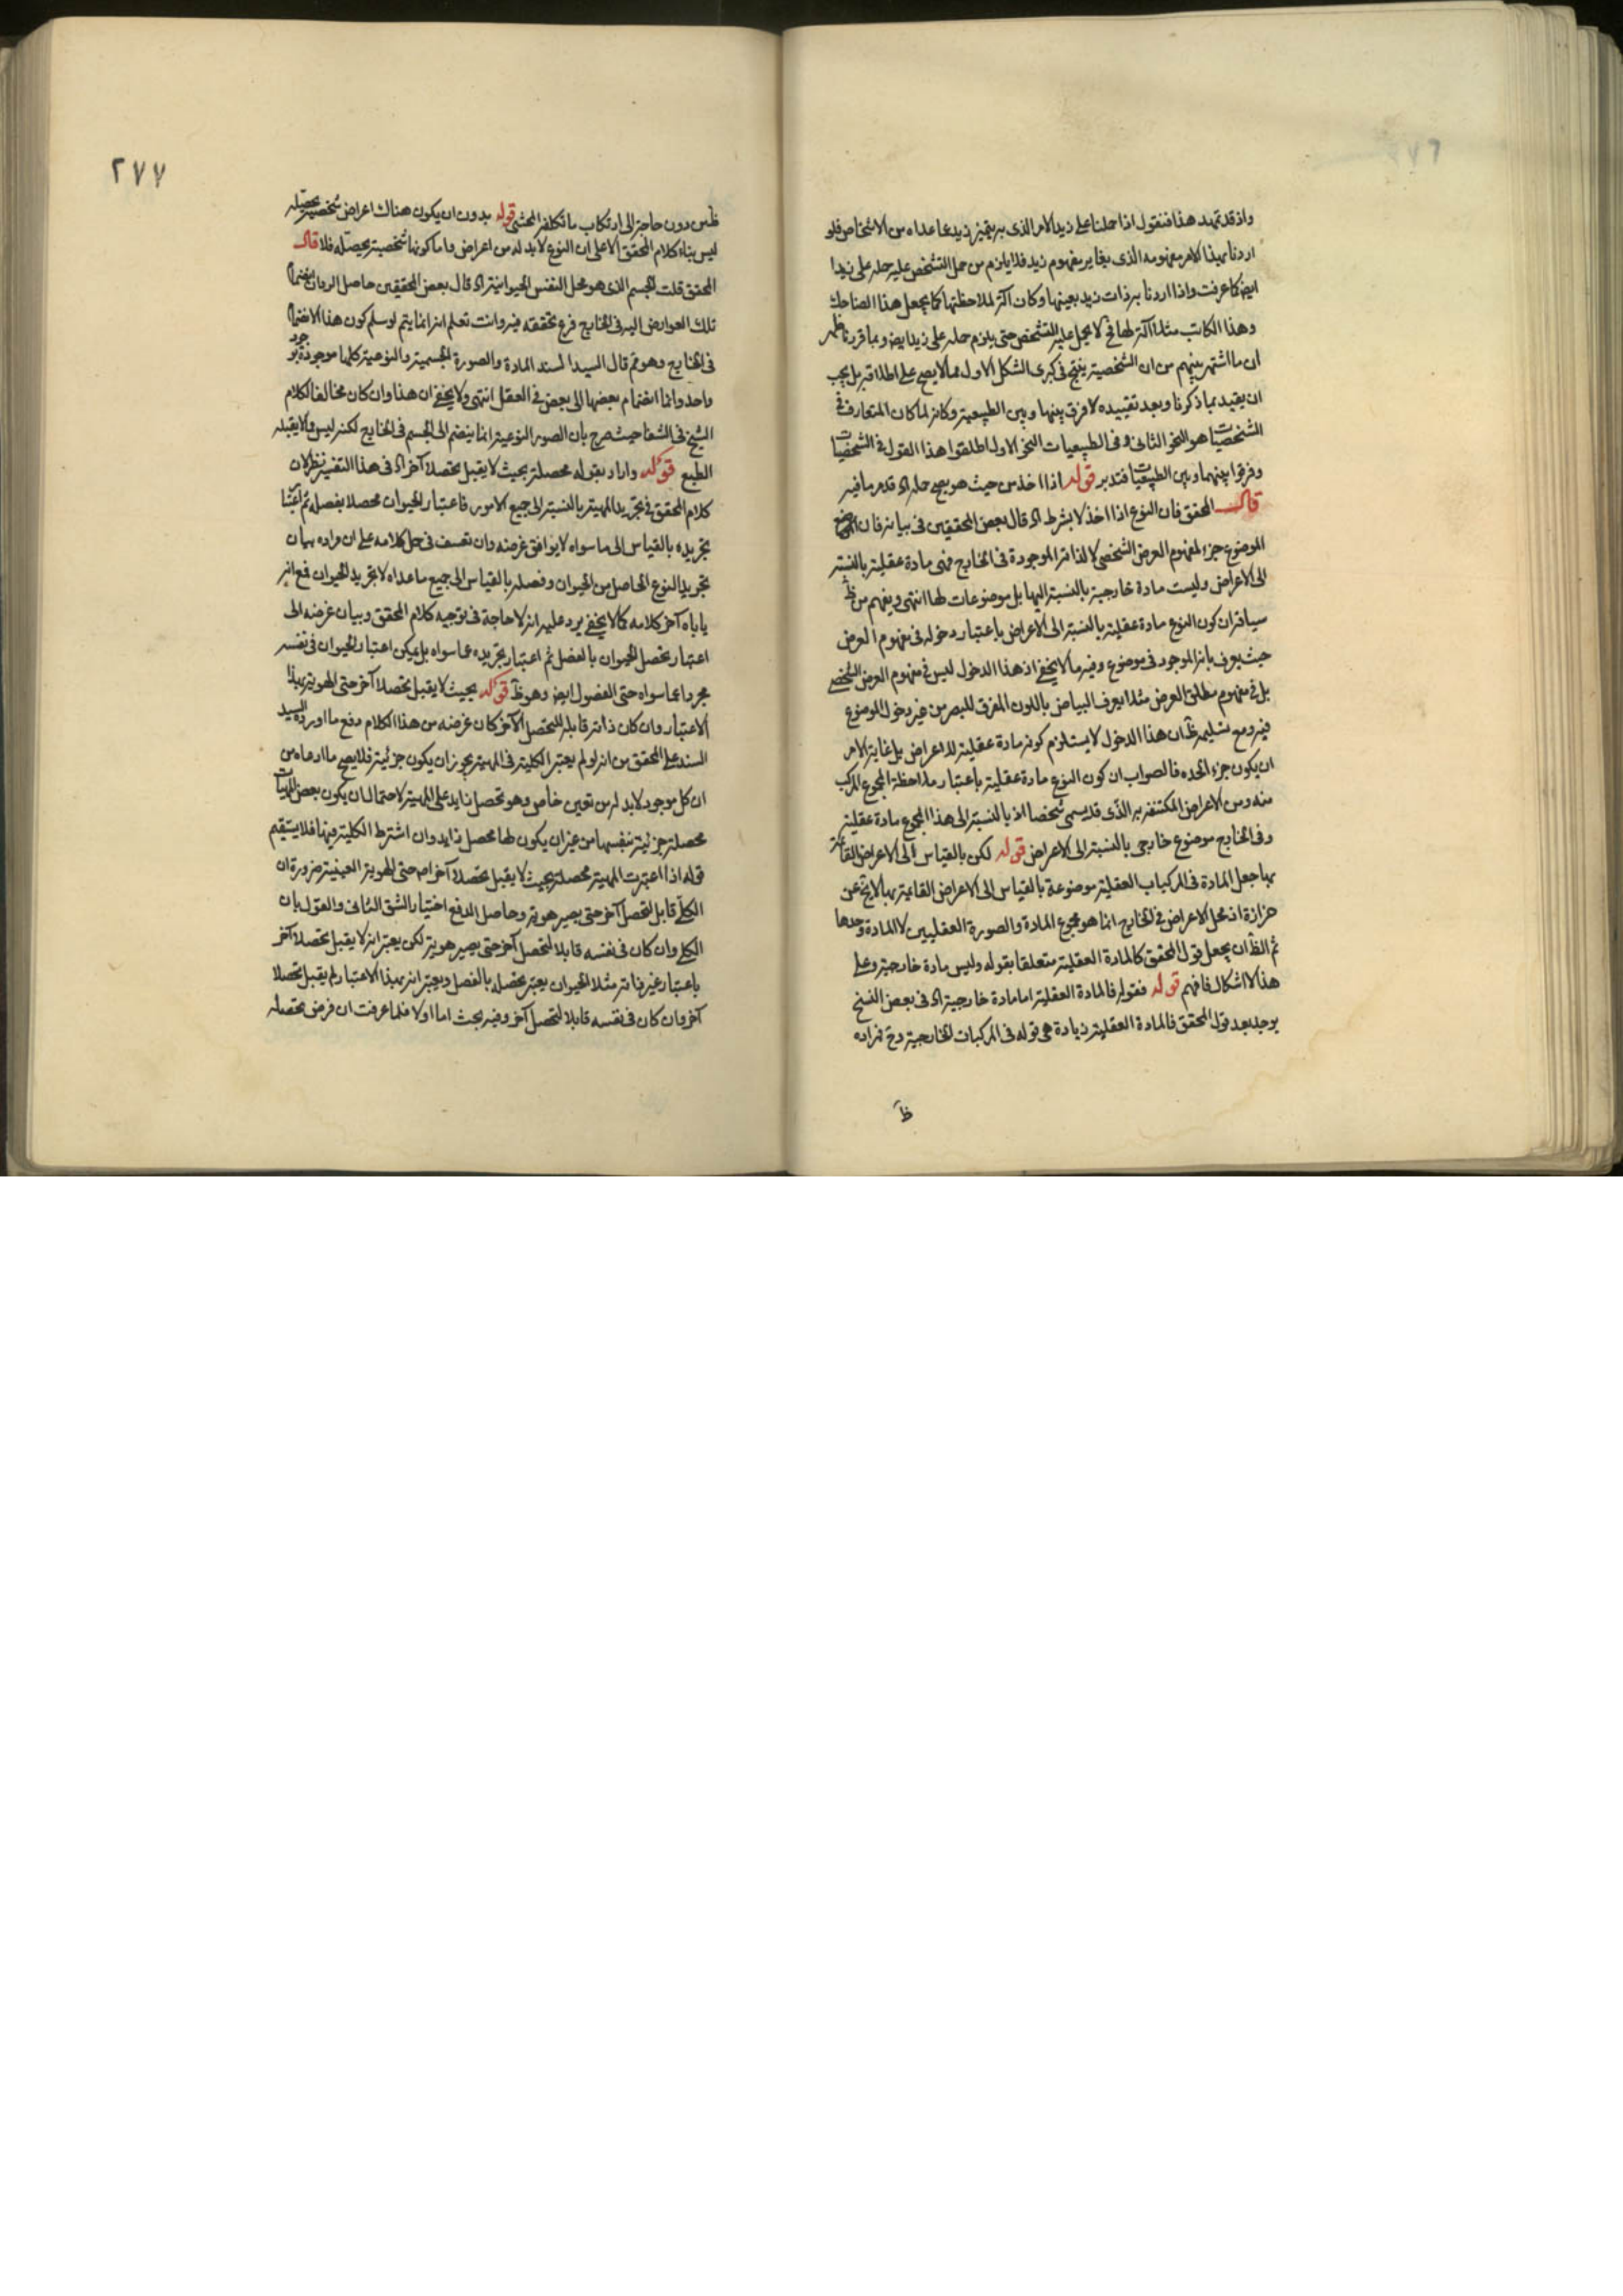 واذ قد تمهد هذا فنقول اذا حملنا على زيد الامر الذى به يتميز زيد عما عداه من الاشخاص فلو
اردنا بهذا الامر مفهومه الذى يغاير مفهوم زيد فلا يلزم من حمل التشخص عليه حمله على زيد
ايضا كما عرفت واذا اردنا به ذات زيد بعينها وكان آلة لملاحظتها كما يجعل هذا الضاحك
وهذا الكاتب مثلا آلة لها فح لا يحمل عليه التشخص حتى يلزم حمله على زيد ايضا وبما قررنا ظهر
ان ما اشتهر بينهم من ان الشخصية ينتج فى كبرى الشكل الاول مما لا يصح على اطلاقه بل يجب
ان يقيد بما ذكرنا وبعد تقييده لا فرق بينها وبين الطبيعية وكانه لما كان المتعارف فى
الشخصيات هو النحو الثانى وفى الطبيعيات النحو الاول اطلقوا هذا القول فى الشخصيات
وفرقوا بينهما وبين الطبيعيات فتدبر قوله اذا اخذ من حيث هو يصح حمله اه قد مر ما فيه
قال المحقق فان النوع اذا اخذ لا بشرط اه قال بعض المحققين فى بيانه فان
الموضوع جزء لمفهوم العرض الشخصى لا لذاته الموجودة فى الخارج فهى مادة عقلية بالنسبة
الى الاعراض وليست مادة خارجية بالنسبة اليها بل موضوعات لها انتهى ويفهم من ظ
سياقه ان كون النوع مادة عقلية بالنسبة الى الاعراض باعتبار دخوله فى مفهوم العرض
حيث يعرف بانه الموجود فى موضوع وفيه ما لا يخفى اذ هذا الدخول ليس فى مفهوم العرض الشخصى
بل فى مفهوم مطلق العرض مثلا يعرف البياض باللون المفرق للبصر من غير دخول الموضوع
فيه ومع تسليمه ظ ان هذا الدخول لا يستلزم كونه مادة عقلية للاعراض بل غاية الامر
ان يكون جزء لحده فالصواب ان كون النوع مادة عقلية باعتبار ملاحظة المجموع المركب
منه ومن الاعراض المكتنفة به الذى قد يسمى شخصا اذ بالنسبة الى هذا المجموع مادة عقلية
وفى الخارج موضوع خارجى بالنسبة الى الاعراض قوله لكن بالقياس الى الاعراض القائمة
بها جعل المادة فى المركبات العقلية موضوعة بالقياس الى الاعراض القائمة بها لا يخ عن
حزازة اذ محل الاعراض فى الخارج انما هو مجموع المادة والصورة العقليين لا المادة وحدها
ثم الظ ان يجعل قول المحقق كالمادة العقلية متعلقا بقوله وليس مادة خارجية وعلى
هذا لا اشكال فافهم قوله فقوله فالمادة العقلية اما مادة خارجية اه فى بعض النسخ
يوجد بعد قول المحقق فالمادة العقلية زيادة هى قوله فى المركبات الخارجية وح مراده
ظ
٢٧٧
ظ من دون حاجة الى ارتكاب ما تكلفه المحشى قوله بدون ان يكون هناك اعراض شخصية محصلة
ليس بناء كلام المحقق الا على ان النوع لا بد له من اعراض واما كونها شخصية محصلة له فلا قال
المحقق قلت للجسم الذى هو محل النفس الحيوانية اه قال بعض المحققين حاصل الرد ان انضمام
تلك العوارض اليه فى الخارج فرع تحققه فيه وانت تعلم انه انما يتم لو سلم كون هذا الانضمام
فى الخارج وهو مم قال السيد السند المادة والصورة الجسمية والنوعية كلها موجودة بوجود
واحد وانما انضمام بعضها الى بعض فى العقل انتهى ولا يخفى ان هذا وان كان مخالفا لكلام
الشيخ فى الشفا حيث صرح بان الصور النوعية انما ينضم الى الجسم فى الخارج لكنه ليس مما لا يقبله
الطبع قوله واراد بقوله محصلة بحيث لا يقبل تحصلا آخر اه فى هذا التفسير نظر لان
كلام المحقق فى تجريد المهية بالنسبة الى جميع الامور فاعتبار الحيوان محصلا بفصله ثم اعتبار
تجريده بالقياس الى ما سواه لا يوافق غرضه وان تعسف فى حل كلامه على ان مراده بيان
تجريد النوع الحاصل من الحيوان وفصله بالقياس الى جميع ما عداه لا تجريد الحيوان فمع انه
ياباه آخر كلامه كما لا يخفى يرد عليه انه لا حاجة فى توجيه كلام المحقق وبيان غرضه الى
اعتبار تحصل الحيوان بالفصل ثم اعتبار تجريده عما سواه بل يمكن اعتبار الحيوان فى نفسه
مجردا عما سواه حتى الفصول ايضا وهو ظ قوله بحيث لا يقبل تحصلا آخر حتى الهوية بهذا
الاعتبار وان كان ذاته قابلة للتحصل الآخر كان غرضه من هذا الكلام دفع ما اورده السيد
السند على المحقق من انه لو لم يعتبر الكلية فى المهية يجوز ان يكون جزئية فلا يصح ما ادعاه من
ان كل موجود لا بد له من تعين خاص وهو تحصل زايد على المهية لاحتمال ان يكون بعض المهيات
محصلة جزئية بنفسها من غير ان يكون لها محصل زايد وان اشترط الكلية فيها فلا يستقيم
قوله اذا اعتبرت المهية محصلة بحيث لا يقبل تحصلا آخر اه حتى الهوية العينية ضرورة ان
الكلى قابل لتحصل آخر حتى يصير هوية وحاصل الدفع اختيار الشق الثانى والقول بان
الكلى وان كان فى نفسه قابلا لتحصل آخر حتى يصير هوية لكن يعتبر انه لا يقبل تحصلا آخر
باعتبار غير ذاته مثلا الحيوان يعتبر تحصله بالفصل ويعتبر انه بهذا الاعتبار لم يقبل تحصلا
آخر وان كان فى نفسه قابلا لتحصل آخر وفيه بحث اما اولا فلما عرفت ان فرض تحصله